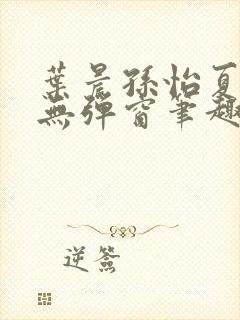 葉晨孫怡夏
無彈窗筆趣
逆簽